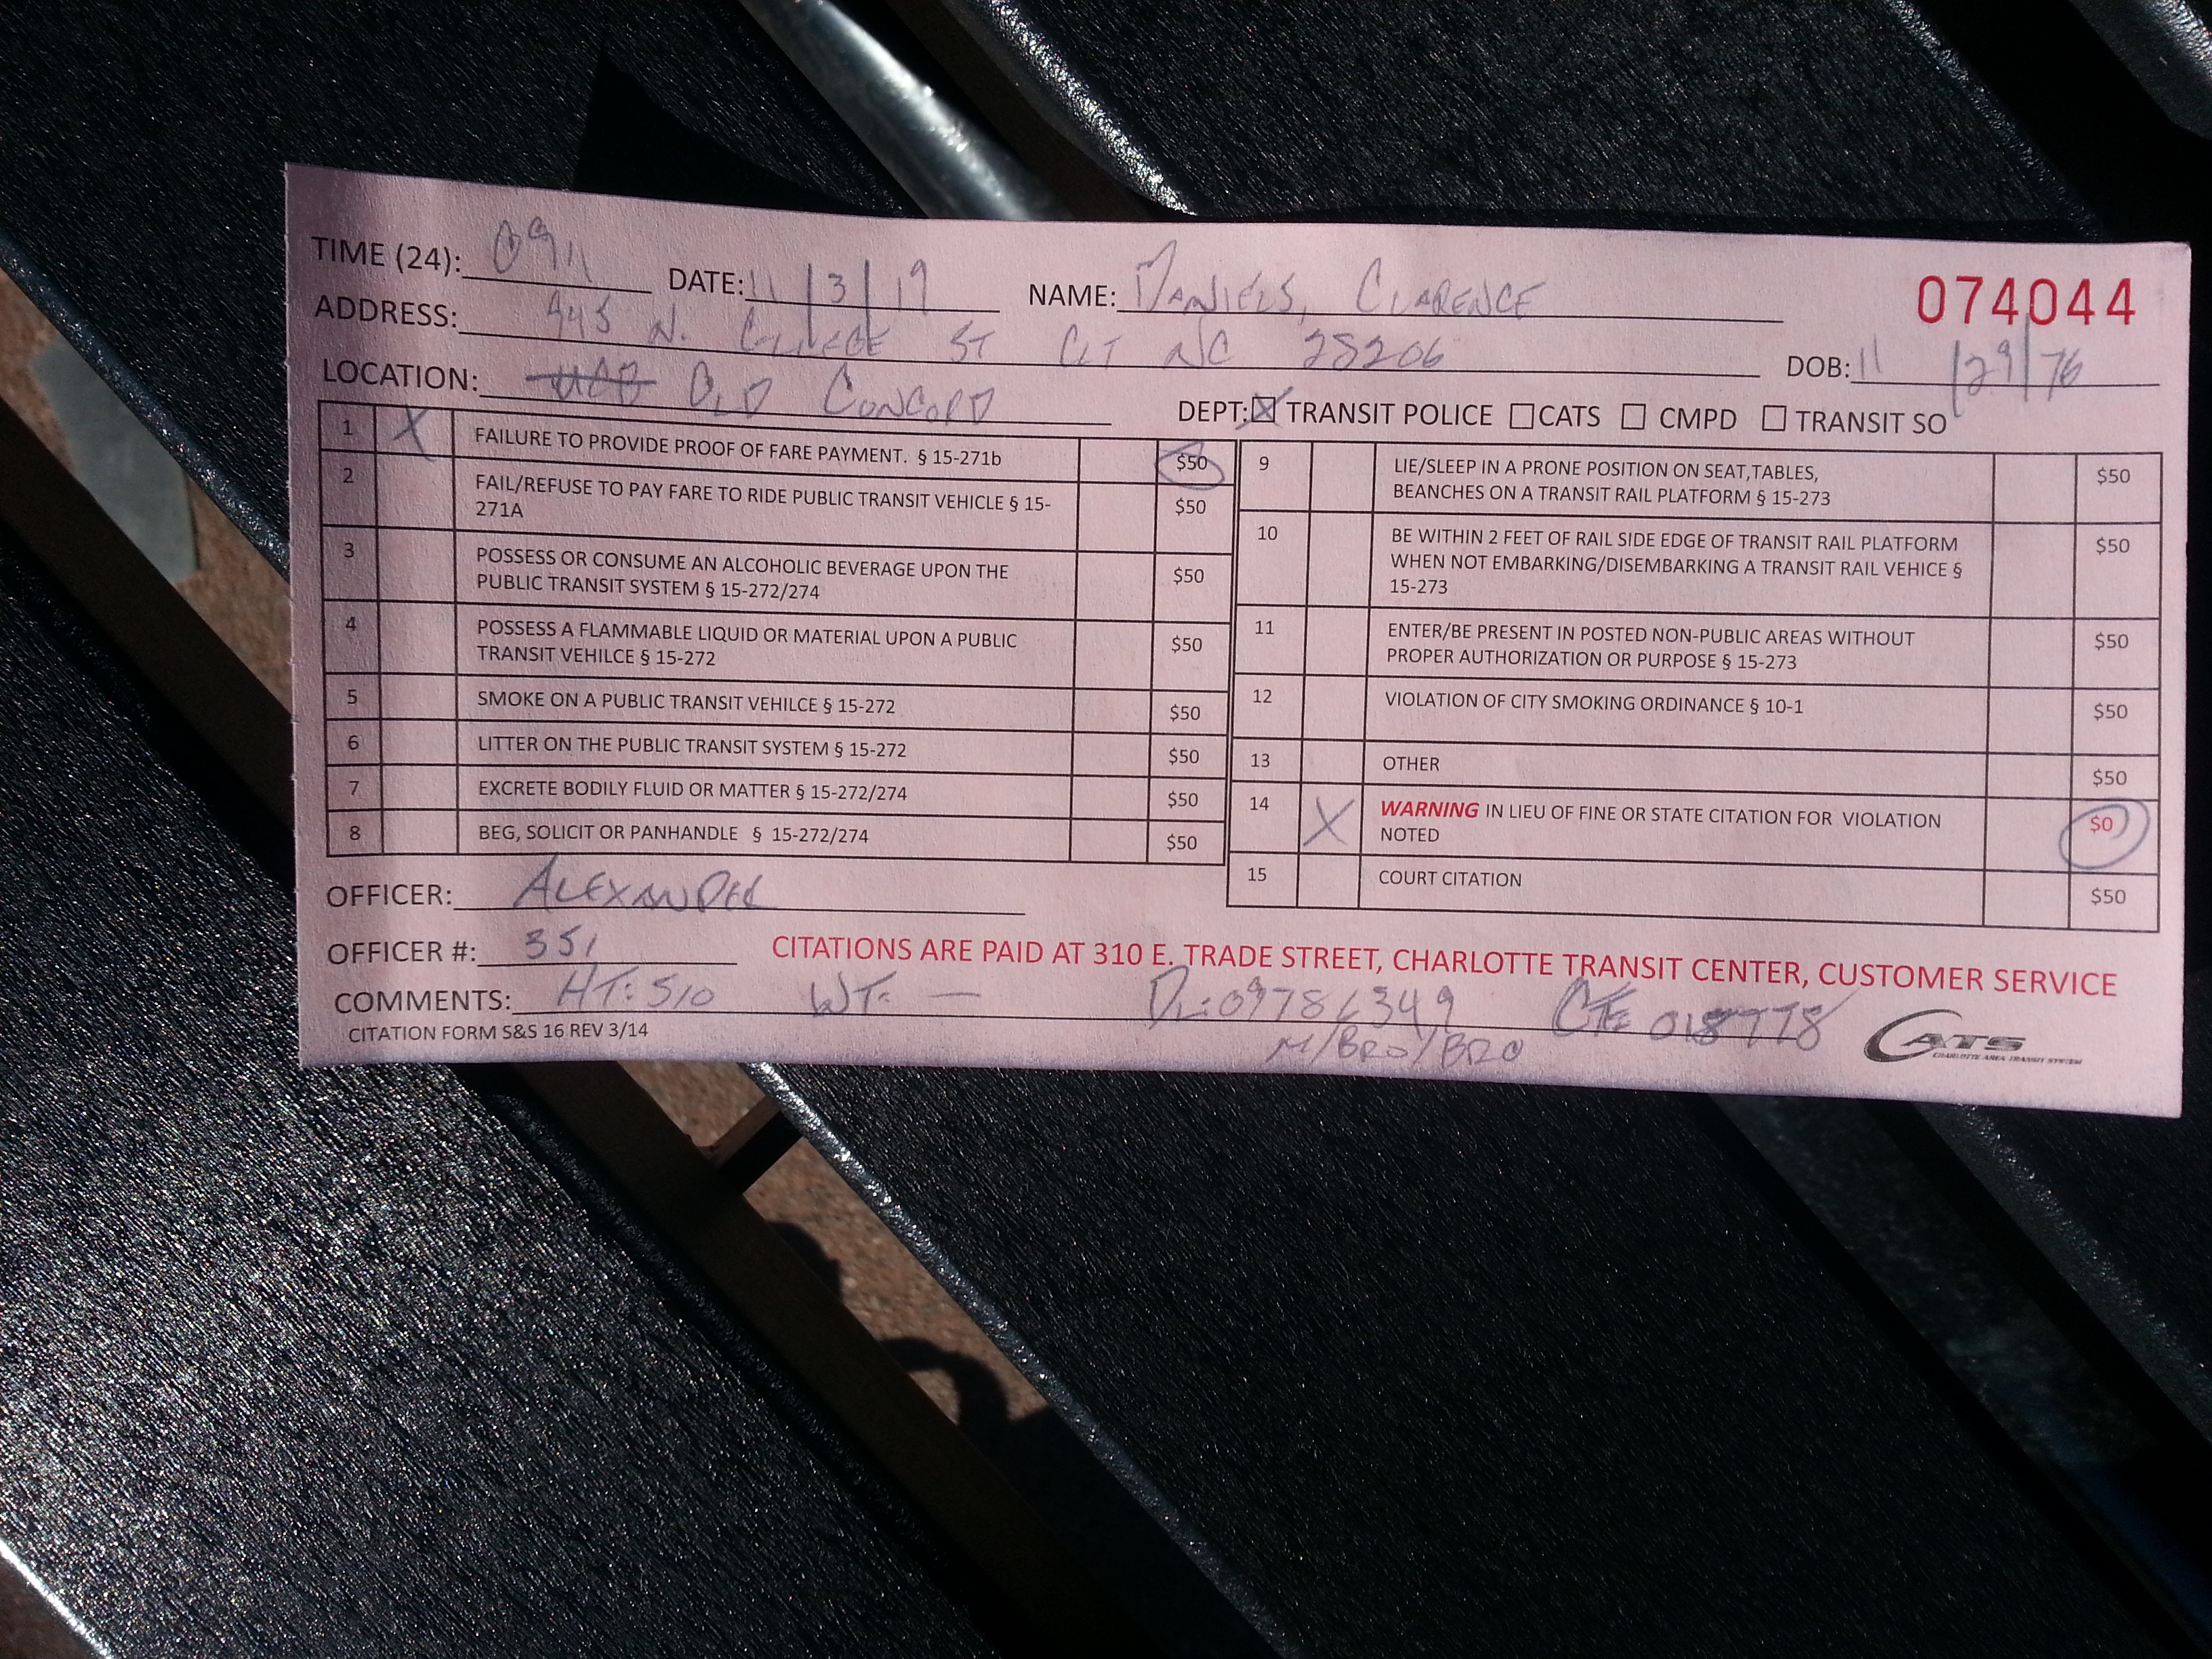 TIME (24): 0911 DATE: 11/3/19 NAME: DANIELS, CLARENCE 074044
ADDRESS: 945 N. COLLEGE ST CLT NC 28206 DOB: 11/29/76
LOCATION: OLD CONCORD DEPT: ☒ TRANSIT POLICE ☐ CATS ☐ CMPD ☐ TRANSIT SO
1 X FAILURE TO PROVIDE PROOF OF FARE PAYMENT. § 15-271b $50
2 FAIL/REFUSE TO PAY FARE TO RIDE PUBLIC TRANSIT VEHICLE § 15-
271A $50
3 POSSESS OR CONSUME AN ALCOHOLIC BEVERAGE UPON THE
PUBLIC TRANSIT SYSTEM § 15-272/274 $50
4 POSSESS A FLAMMABLE LIQUID OR MATERIAL UPON A PUBLIC
TRANSIT VEHILCE § 15-272 $50
5 SMOKE ON A PUBLIC TRANSIT VEHILCE § 15-272 $50
6 LITTER ON THE PUBLIC TRANSIT SYSTEM § 15-272 $50
7 EXCRETE BODILY FLUID OR MATTER § 15-272/274 $50
8 BEG, SOLICIT OR PANHANDLE § 15-272/274 $50
9 LIE/SLEEP IN A PRONE POSITION ON SEAT,TABLES,
BEANCHES ON A TRANSIT RAIL PLATFORM § 15-273 $50
10 BE WITHIN 2 FEET OF RAIL SIDE EDGE OF TRANSIT RAIL PLATFORM
WHEN NOT EMBARKING/DISEMBARKING A TRANSIT RAIL VEHICE §
15-273 $50
11 ENTER/BE PRESENT IN POSTED NON-PUBLIC AREAS WITHOUT
PROPER AUTHORIZATION OR PURPOSE § 15-273 $50
12 VIOLATION OF CITY SMOKING ORDINANCE § 10-1 $50
13 OTHER $50
14 X WARNING IN LIEU OF FINE OR STATE CITATION FOR VIOLATION
NOTED $0
15 COURT CITATION $50
OFFICER: ALEXANDER
OFFICER #: 351 CITATIONS ARE PAID AT 310 E. TRADE STREET, CHARLOTTE TRANSIT CENTER, CUSTOMER SERVICE
COMMENTS: HT: 510 WT: — DL: 09786349
M/BRO/BRO
CITATION FORM S&S 16 REV 3/14
CATS
CHARLOTTE AREA TRANSIT SYSTEM